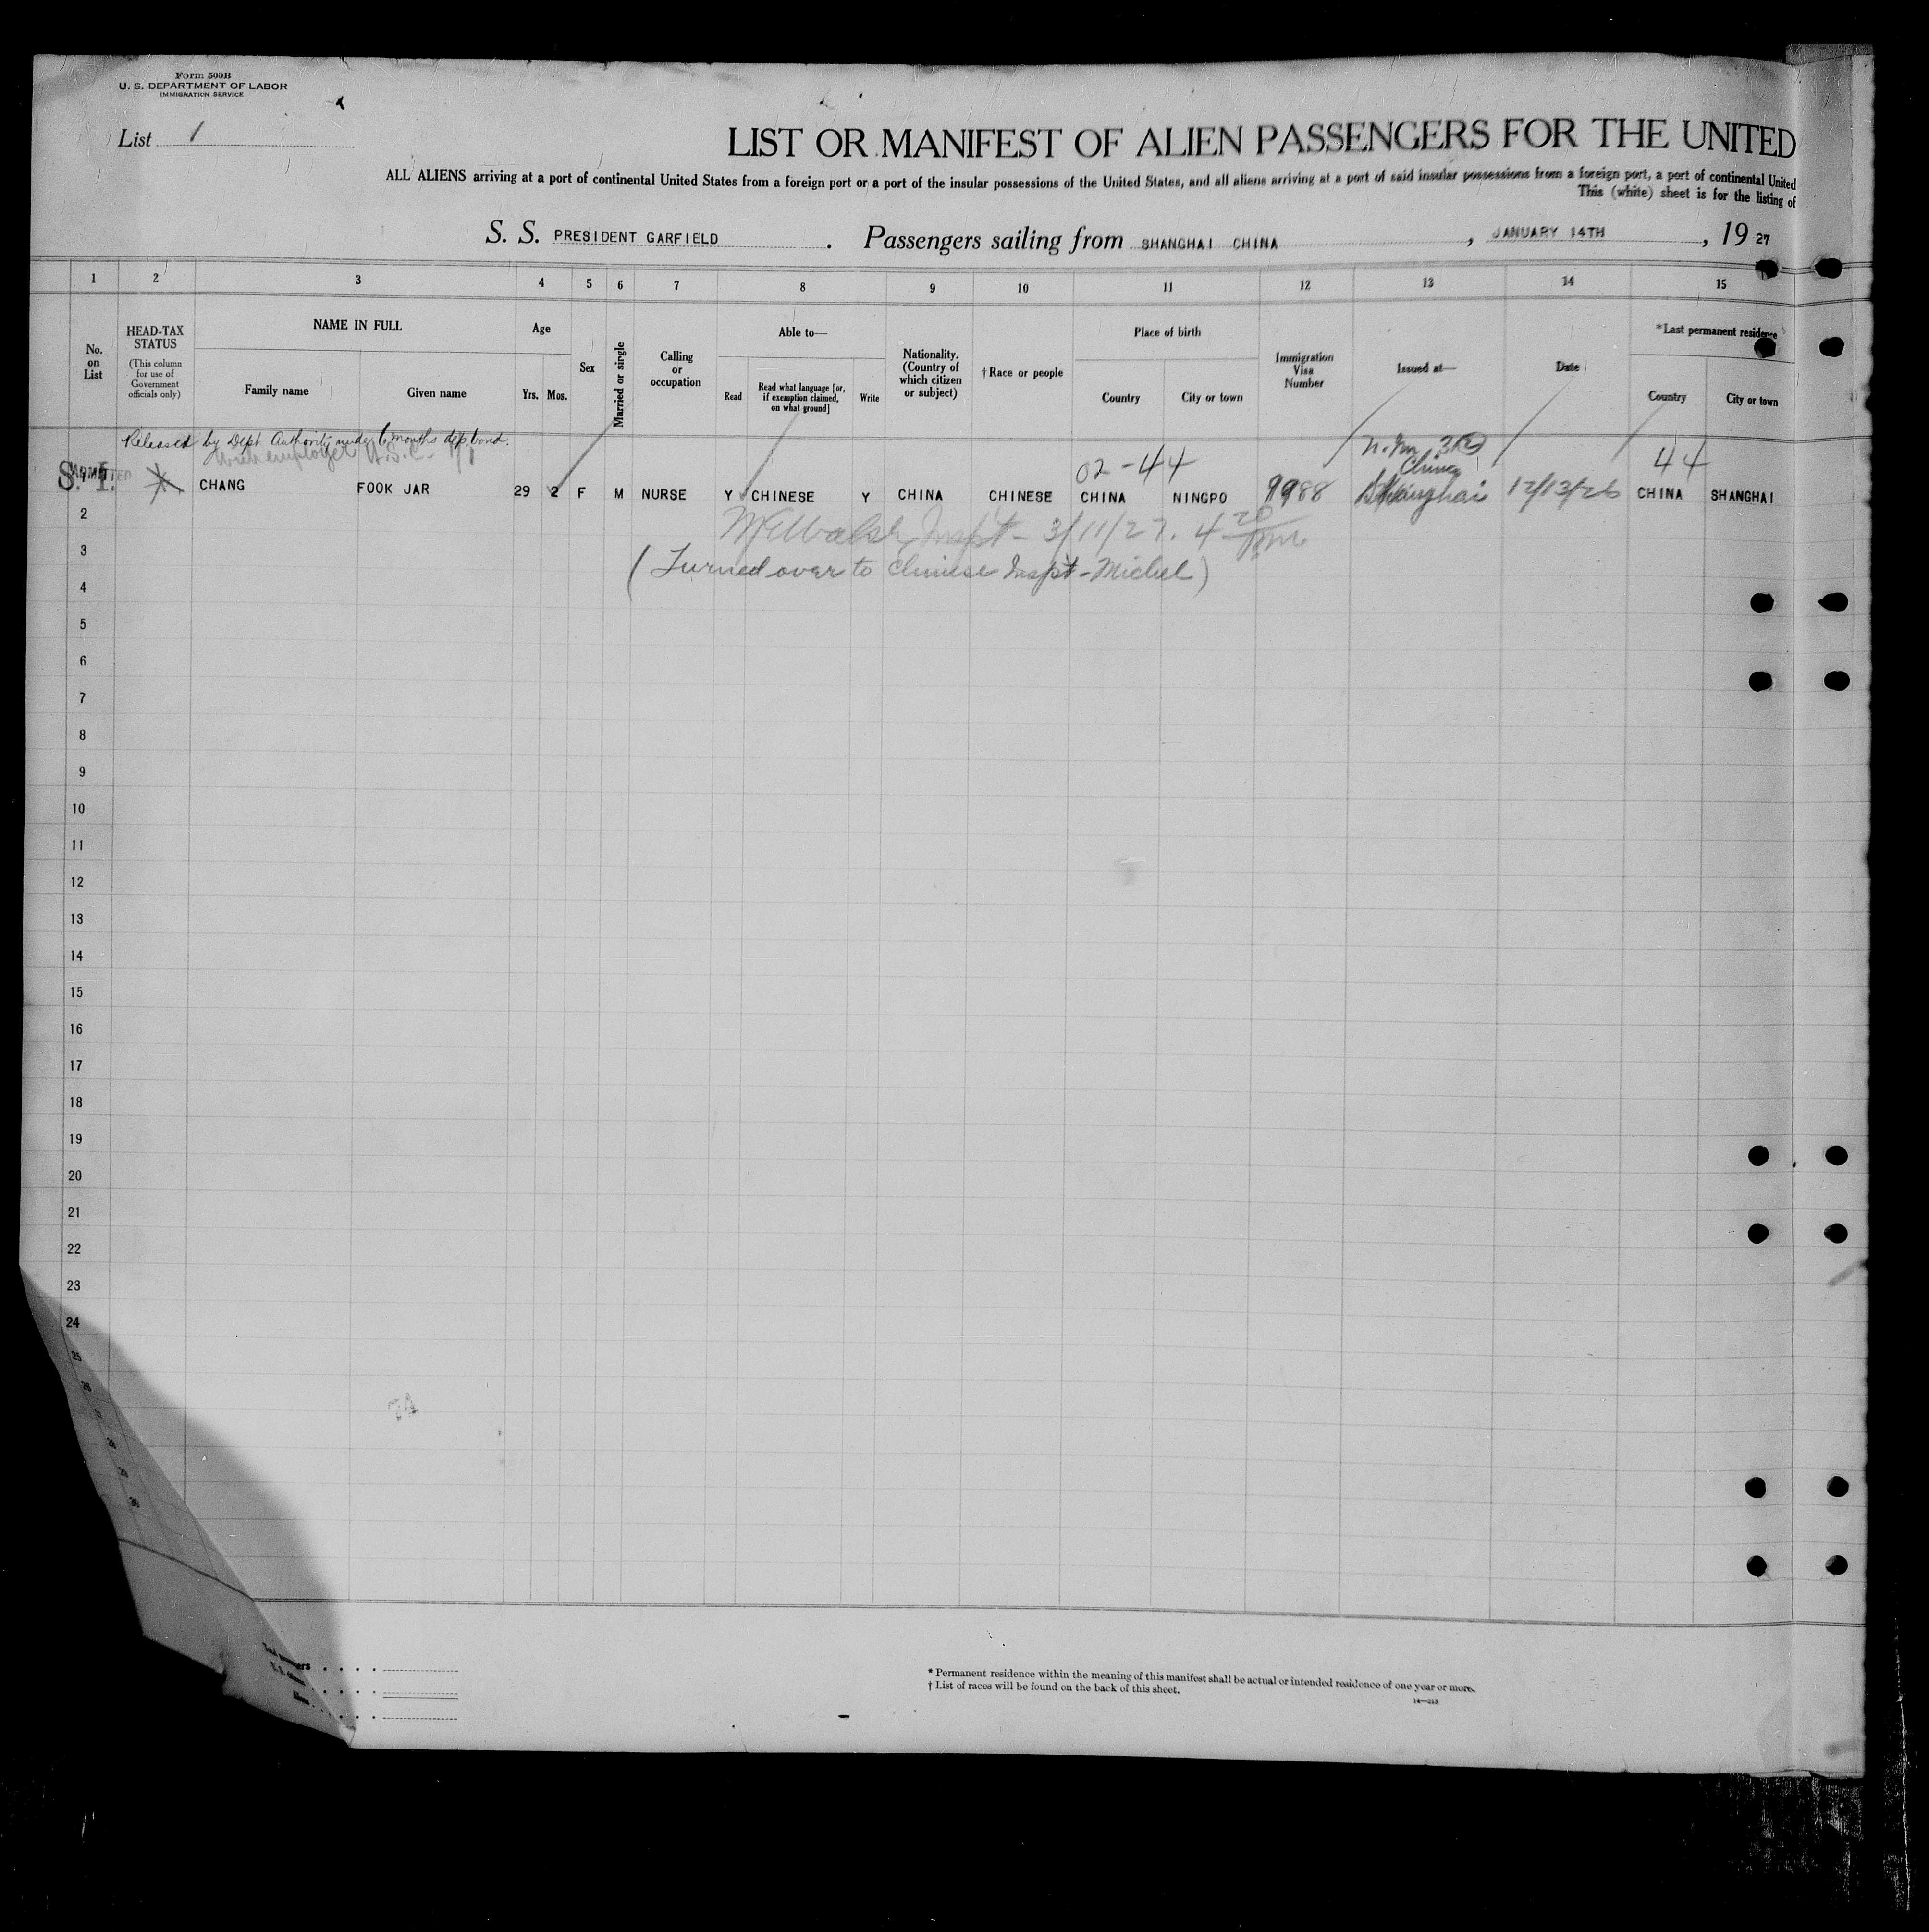 Form 500B
U. S. DEPARTMENT OF LABOR
IMMIGRATION SERVICE
List 1
LIST OR MANIFEST OF ALIEN PASSENGERS FOR THE UNITED
ALL ALIENS arriving at a port of continental United States from a foreign port or a port of the insular possessions of the United States, and all aliens arriving at a port of said insular possessions from a foreign port, a port of continental United
This (white) sheet is for the listing of
S. S. PRESIDENT GARFIELD . Passengers sailing from SHANGHAI CHINA , JANUARY 14TH , 19 27
1 2 3 4 5 6 7 8 9 10 11 12 13 14 15
No. on List
HEAD-TAX STATUS
(This column for use of Government officials only)
NAME IN FULL
Family name Given name
Age
Yrs. Mos.
Sex
Married or single
Calling or occupation
Able to—
Read
Read what language [or, if exemption claimed, on what ground]
Write
Nationality. (Country of which citizen or subject)
†Race or people
Place of birth
Country City or town
Immigration Visa Number
Issued at—
Date
*Last permanent residence
Country City or town
Released by Dept. Authority under 6 months dep. bond.
with employer
02-44 China 44
S. I. ADMITTED CHANG FOOK JAR 29 2 F M NURSE Y CHINESE Y CHINA CHINESE CHINA NINGPO 9988 Shanghai 12/13/26 CHINA SHANGHAI
2
Walsh Inspt - 3/11/27. 4 20
3
(Turned over to Chinese Inspt - Michel)
4
5
6
7
8
9
10
11
12
13
14
15
16
17
18
19
20
21
22
23
24
25
26
* Permanent residence within the meaning of this manifest shall be actual or intended residence of one year or more.
† List of races will be found on the back of this sheet.